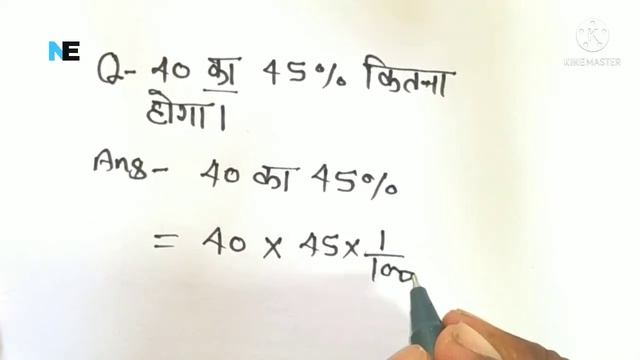 NE
KINEMASTER
Q- 40 का 45% कितना
होगा।
Ans- 40 का 45%
= 40 × 45 × 1/100